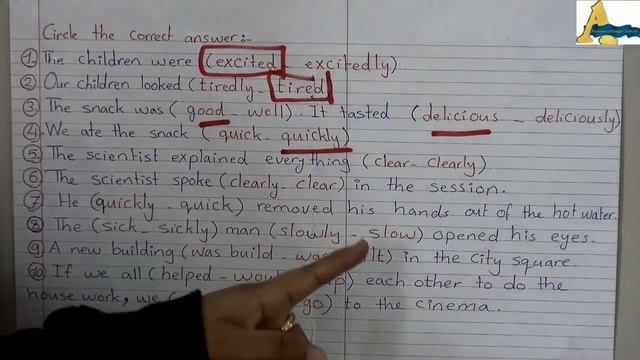 Circle the correct answer:-
① The children were (excited excitedly).
② Our children looked (tiredly - tired
③ The snack was (good - well). It tasted (delicious - deliciously)
④ We ate the snack (quick - quickly)
⑤ The scientist explained everything (clear - clearly).
⑥ The scientist spoke (clearly - clear) in the session.
⑦ He (quickly - quick) removed his hands out of the hot water.
⑧ The (sick - sickly) man (slowly - slow) opened his eyes.
⑨ A new building (was build - was lt) in the city square
⑩ If we all (helped - would lp) each other to do the
house work, we ( go) to the cinema.